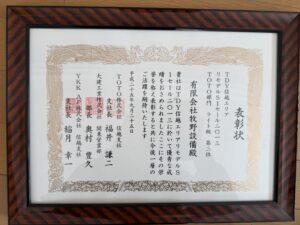 表彰状
TDY信越エリア
リモデルSIセール2013
TOTO部門 ライト級 第三位
有限会社牧野設備殿
貴社はTDY信越エリアリモデルS
Iセール2013に於いて優秀な成
績をおさめられましたここにその栄
誉を称え表彰すると共に今後一層の
ご活躍を期待いたします
平成二十五年九月二十五日
TOTO株式会社 信越支社
支社長 福井 謙二
大建工業株式会社
部長 奥村 豊久
YKK AP株式会社 信越支社
支社長 稲月 幸一